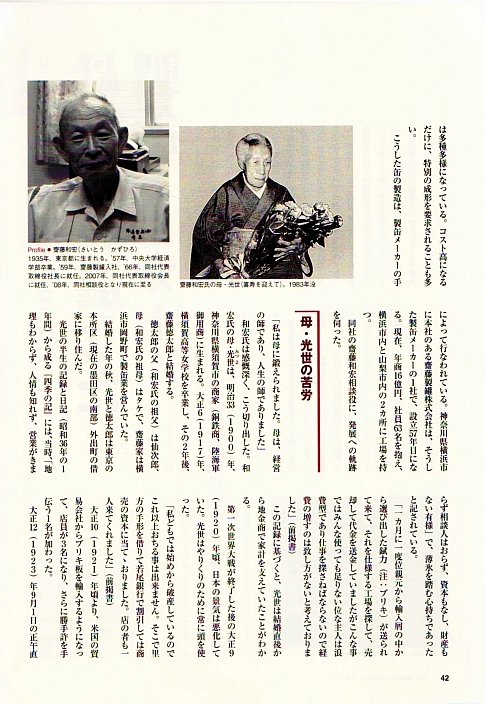 は多種多様になっている。コスト高になる
だけに、特別の成形を要求されることも多
い。
こうした缶の製造は、製缶メーカーの手
Profile●齋藤和宏(さいとう かずひろ)
1935年、東京都に生まれる。'57年、中央大学経済
学部卒業。'59年、齋藤製罐入社。'66年、同社代表
取締役社長に就任。2007年、同社代表取締役会長
に就任。'08年、同社相談役となり現在に至る
齋藤和宏氏の母・光世(喜寿を迎えて)。1983年没
によって行なわれている。神奈川県横浜市
に本社のある齋藤製罐株式会社は、そうし
た製缶メーカーの1社で、設立57年目にな
る。現在、年商16億円、社員63名を抱え、
横浜市内と山梨市内の2カ所に工場を持
つ。
同社の齋藤和宏相談役に、発展への軌跡
を伺った。
母・光世の苦労
「私は母に鍛えられました。母は、経営
の師であり、人生の師でありました」
和宏氏は感慨深く、こう切り出した。和
宏氏の母・光世は、明治33(1900)年、
神奈川県横須賀市の商家(銅鉄商、陸海軍
御用商)に生まれる。大正6(1917)年、
横須賀高等女学校を卒業し、その2年後、
齋藤德太郎と結婚する。
德太郎の父(和宏氏の祖父)は仙次郎、
母(和宏氏の祖母)はタケで、齋藤家は横
浜市岡野町で製缶業を営んでいた。
結婚した年の秋、光世と德太郎は東京の
本所区(現在の墨田区の南部)外出町の借
家に移り住んだ。
光世の半生の記録と日記(昭和36年の1
年間)から成る『四季の記』には、当時、「地
理もわからず、人情も知れず、営業がきま
らず相談人はおらず、資本もなし、財産も
ない有様」で、「薄氷を踏む心持ちであった」
と記されている。
「一カ月に一度位親元から輸入屑の中か
ら選び出した鉞力(注:ブリキ)が送られ
て来て、それを仕様する工場を探して、売
却して代金を送金していましたがこんな事
ではみんな使っても足りない位な主人は浪
費型であり仕事を探さねばならないので経
費の増すのは致し方がないと考えておりま
した」(前掲書)
この記録に基づくと、光世は結婚直後か
ら地金商で家計を支えていたことがわか
る。
第一次世界大戦が終了した後の大正9
(1920)年頃、日本の景気は悪化して
いた。光世はやりくりのために常に頭を使
った。
「私どもでは始めから破産しているので
これ以上おちる事は出来ません。そこで里
方の手形を借りて若尾銀行で割引しては商
売の資本に当てておりました。店の者も一
人来てくれました」(前掲書)
大正10(1921)年頃より、米国の貿
易会社からブリキ板を輸入するようになっ
て、店員が3名になり、さらに勝手許を手
伝う1名が加わった。
大正12(1923)年9月1日の正午直
42